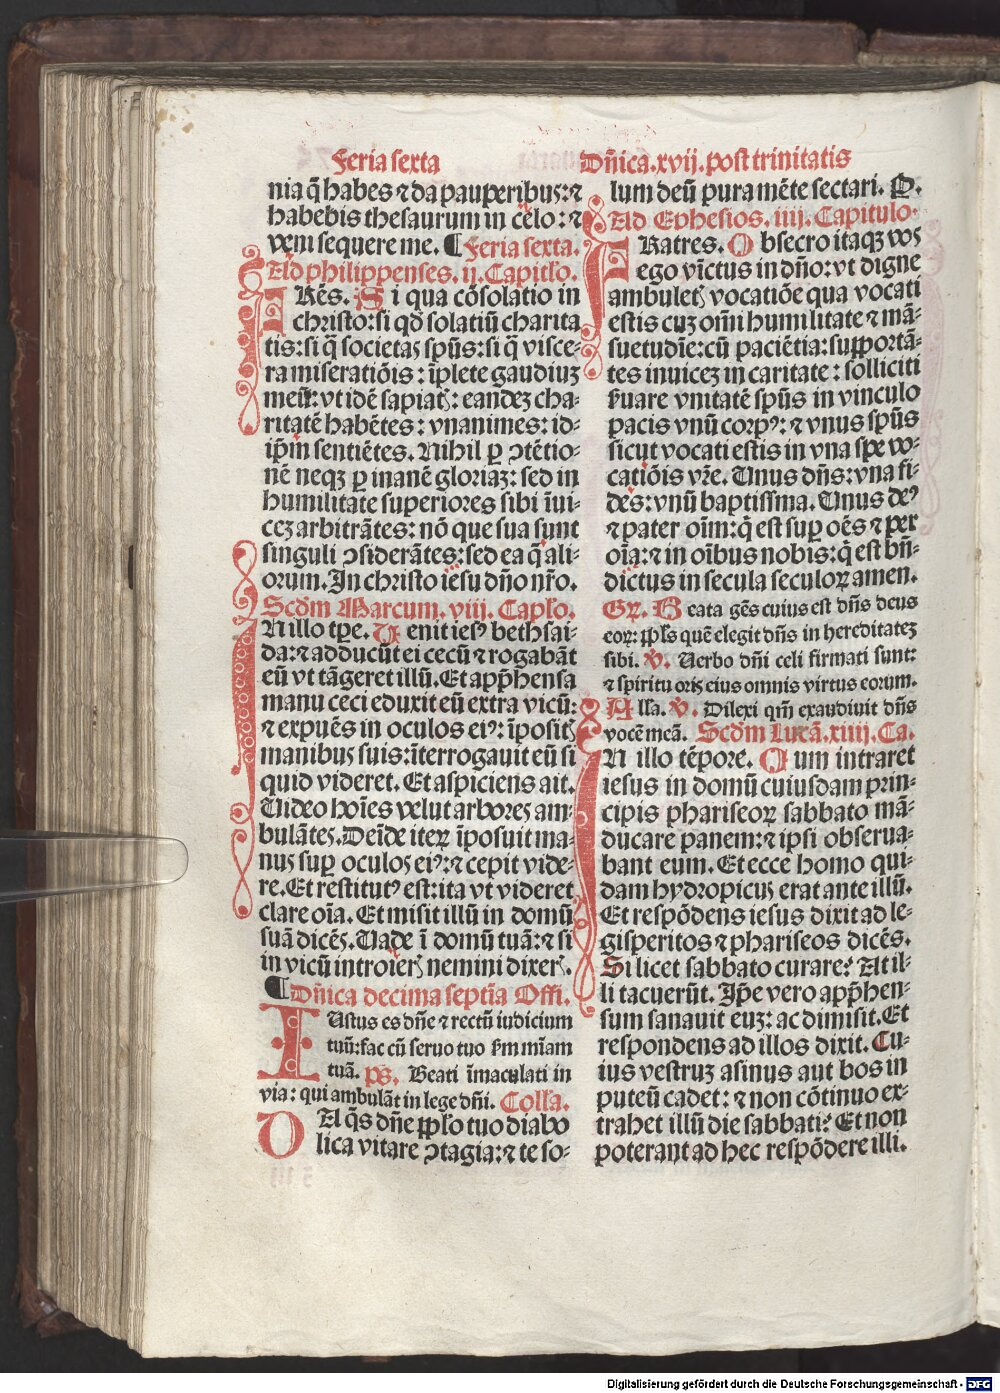 Feria sexta
nia q̄ habes ⁊ da pauperibus: ⁊
habebis thesaurum in celo: ⁊
veni sequere me. ¶ Feria sexta.
Ad philippenses. ij. Capitło.
FRēs. Si qua cōsolatio in
christo: si qđ solatiū charita
tis: si q̄ societas spūs: si q̄ visce-
ra miseratiōis: īplete gaudiuꝫ
meū: vt idē sapiatꝭ: eandeꝫ cha-
ritatē habētes: vnanimes: id-
ip̄m sentiētes. Nihil ꝑ ↄtētio-
nē neqꝫ ꝑ inanē gloriaꝫ: sed in
humilitate superiores sibi īui-
ceꝫ arbitrātes: nō que sua sunt
singuli ↄsiderātes: sed ea q̄ ali-
orum. In christo iesu dn̄o nr̄o.
Scd̄m Marcum. viij. Capło.
IN illo tꝑe. Venit iesꝰ bethsai-
da: ⁊ adducūt ei cecū ⁊ rogabāt
eū vt tāgeret illū. Et app̄hensa
manu ceci eduxit eū extra vicū:
⁊ expuēs in oculos eiꝰ: īpositꝭ
manibus suis: īterrogauit eū si
quid videret. Et aspiciens ait.
Uideo hoīes velut arbores am-
bulātes. Deīde iteꝝ īposuit ma-
nus suꝑ oculos eiꝰ: ⁊ cepit vide-
re. Et restitutꝰ est: ita vt videret
clare oīa. Et misit illū in domū
suā dicēs. Uade ī domū tuā: ⁊ si
in vicū introierꝭ nemini dixerꝭ.
¶ Dn̄ica decima septīa Offi.
IUstus es dn̄e ⁊ rectū iudicium
tuū: fac cū seruo tuo ẜm mīam
tuā. ps. Beati īmaculati in
via: qui ambulāt in lege dn̄i. Colla.
DA q̄s dn̄e ꝓpło tuo diabo
lica vitare ↄtagia: ⁊ te so-
Dn̄ica. xvij. post trinitatis
lum deū pura mēte sectari. P.
Ad Ephesios. iiij. Capitulo.
FRatres. Obsecro itaqꝫ vos
ego vīctus in dn̄o: vt digne
ambuletꝭ vocatiōe qua vocati
estis cuꝫ om̄i humilitate ⁊ mā-
suetudīe: cū paciētia: supportā-
tes inuiceꝫ in caritate: solliciti
ẜuare vnitatē spūs in vinculo
pacis vnū corpꝰ: ⁊ vnus spūs
sicut vocati estis in vna spe vo-
catiōis vr̄e. Unus dn̄s: vna fi-
des: vnū baptisma. Unus deꝰ
⁊ pater oīm: q̄ est suꝑ oēs ⁊ per
oīa: ⁊ in oībus nobis: q̄ est bn̄-
dictus in secula seculoꝝ amen.
Gꝝ. Beata gēs cuius est dn̄s deus
eoꝝ: ꝓpłs quē elegit dn̄s in hereditateꝫ
sibi. v̄. Uerbo dn̄i celi firmati sunt:
⁊ spiritu oris eius omnis virtus eorum.
Alla. v̄. Dilexi qm̄ exaudiuit dn̄s
vocē meā. Scd̄m Lucā. xiiij. Ca.
IN illo tēpore. Cum intraret
iesus in domū cuiusdam prin-
cipis phariseoꝝ sabbato mā-
ducare panem: ⁊ ipsi obserua-
bant eum. Et ecce homo qui-
dam hydropicus erat ante illū.
Et respōdens iesus dixit ad le-
gisperitos ⁊ phariseos dicēs.
Si licet sabbato curare? At il-
li tacuerūt. Ip̄e vero app̄hen-
sum sanauit euꝫ: ac dimisit. Et
respondens ad illos dixit. Cu-
ius vestruꝫ asinus aut bos in
puteū cadet: ⁊ non cōtinuo ex-
trahet illū die sabbati? Et non
poterant ad hec respōdere illi.
Digitalisierung gefördert durch die Deutsche Forschungsgemeinschaft - DFG